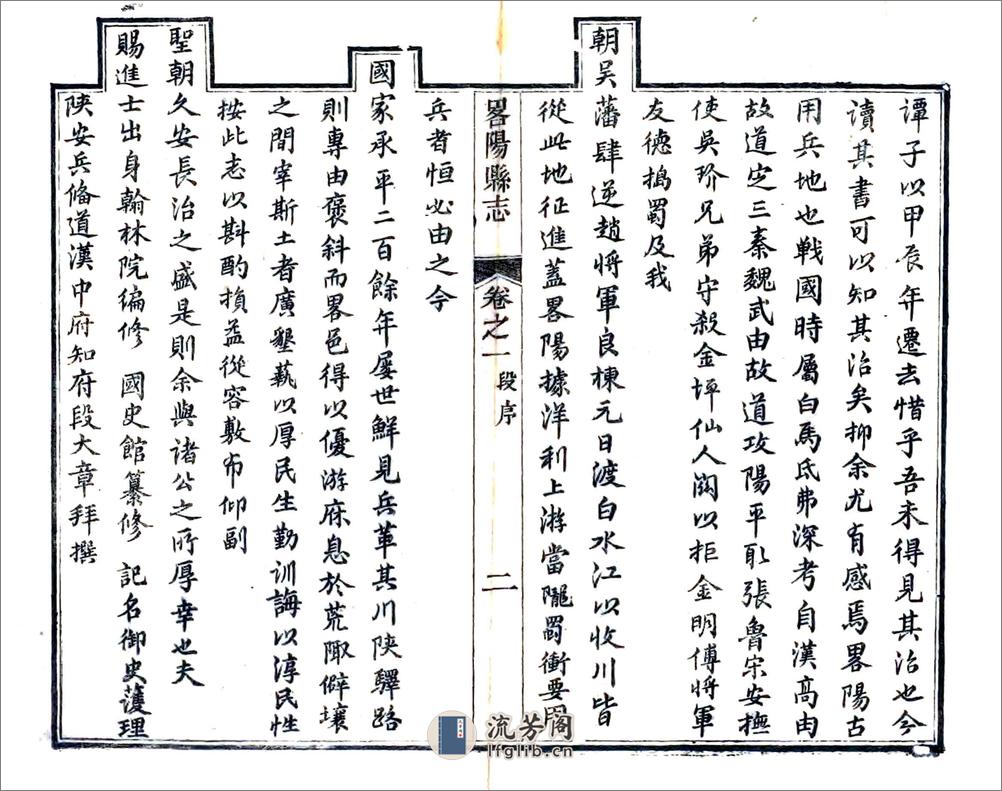 譚子以甲辰年遷去惜乎吾未得見其治也今
讀其書可以知其治矣抑余尤有感焉畧陽古
用兵地也戰國時屬白馬氐弗深考自漢高由
故道定三秦魏武由故道攻陽平取張魯宋安撫
使吳玠兄弟守殺金坪仙人關以拒金明傅將軍
友德搗蜀及我
朝吳藩肆逆趙將軍良棟元日渡白水江以收川皆
從此地征進蓋畧陽據洋利上游當隴蜀衝要用
畧陽縣志
卷之一
段序
二
兵者恒必由之今
國家承平二百餘年屢世鮮見兵革其川陝驛路
則專由褒斜而畧邑得以優游庥息於荒陬僻壤
之間宰斯土者廣墾蓺以厚民生勤訓誨以淳民性
按此志以斟酌損益從容敷布仰副
聖朝久安長治之盛是則余與諸公之所厚幸也夫
賜進士出身翰林院編修 國史館纂修 記名御史護理
陝安兵備道漢中府知府段大章拜撰
流芳閣
lfglib.cn